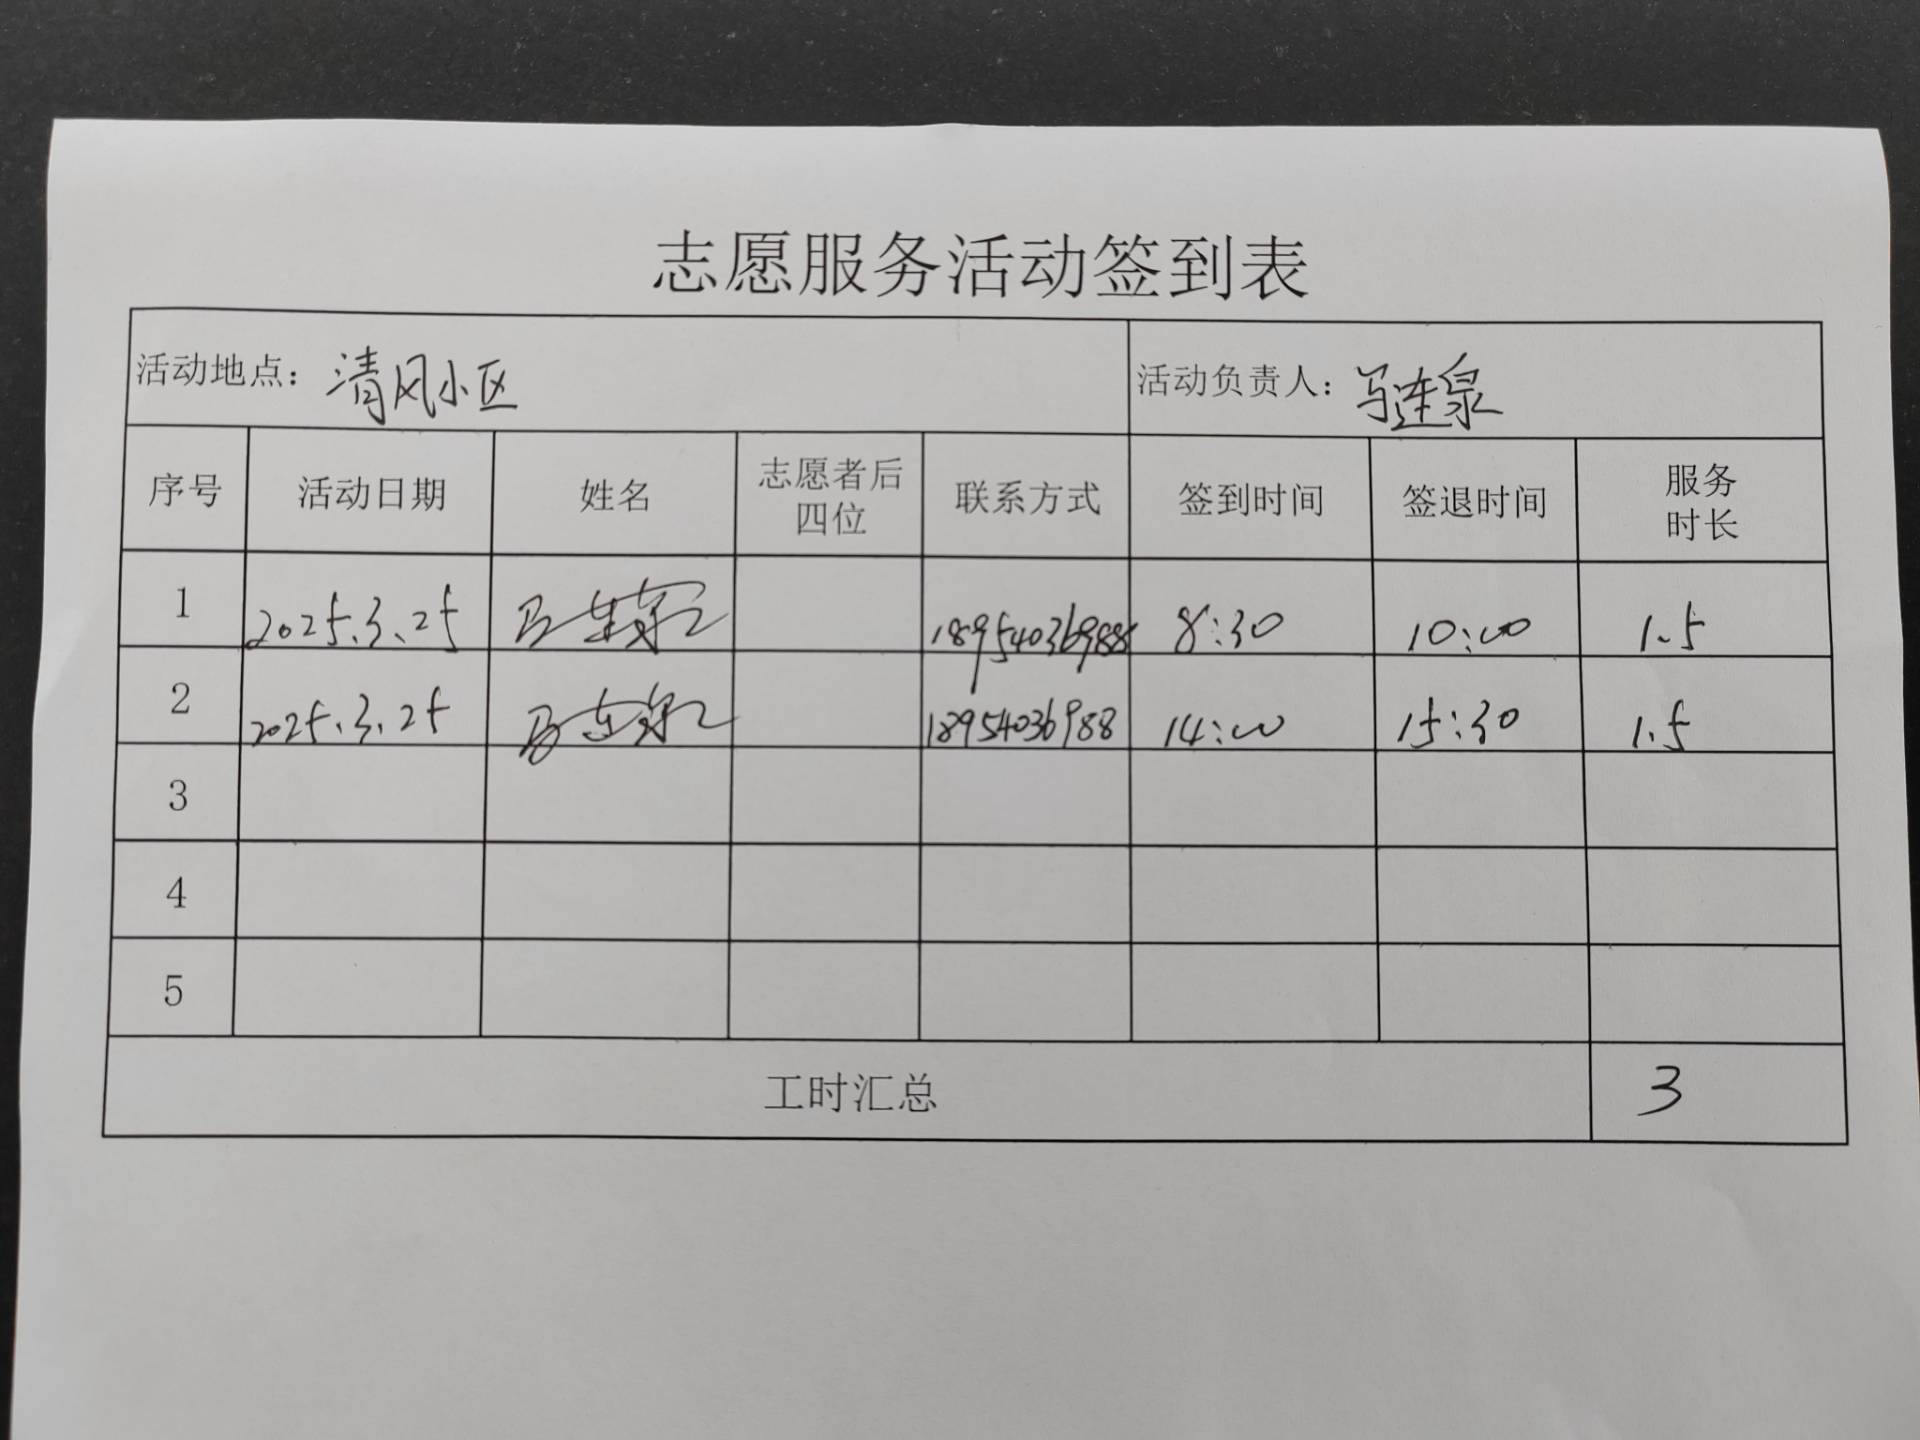 志愿服务活动签到表
活动地点：清风小区 活动负责人：马连泉
序号 活动日期 姓名 志愿者后四位 联系方式 签到时间 签退时间 服务时长
1 2025.3.25 马连泉 18954036988 8:30 10:00 1.5
2 2025.3.25 马连泉 18954036988 14:00 15:30 1.5
3
4
5
工时汇总 3